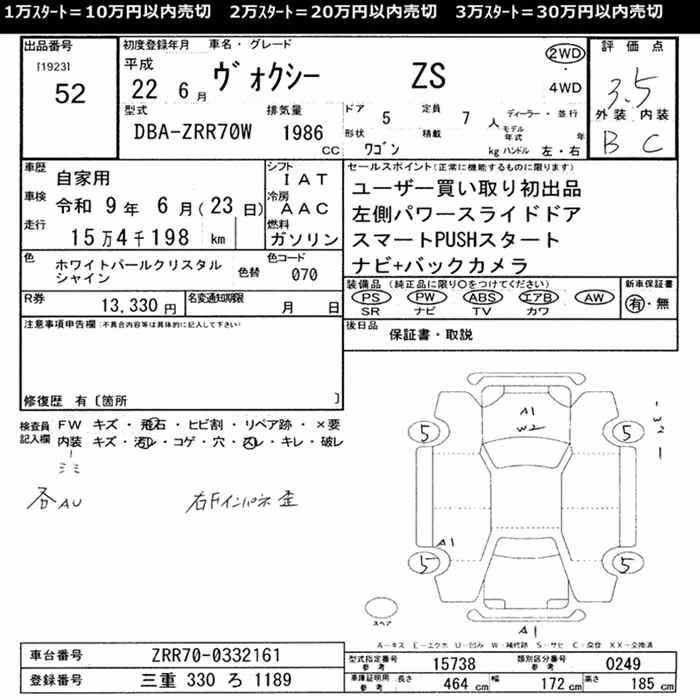 1万スタート＝10万円以内売切　2万スタート＝20万円以内売切　3万スタート＝30万円以内売切
出品番号
[1923]
52
初度登録年月　車名・グレード
平成
22　6月　ヴォクシー　ZS
2WD
・
4WD
評価点
3.5
外装　内装
B　C
型式
DBA-ZRR70W
排気量
1986
CC
ドア　5　定員　7　人
形状　ワゴン　積載　kg
ディーラー・並行
モデル年式　年
ハンドル　左・右
車歴　自家用
車検　令和 9年 6月(23日)
走行　15万4千198　km
シフト
IAT
冷房
AAC
燃料
ガソリン
セールスポイント(正常に機能するものに限ります)
ユーザー買い取り初出品
左側パワースライドドア
スマートPUSHスタート
ナビ+バックカメラ
色
ホワイトパールクリスタル
シャイン
色替
色コード
070
R券　13,330円
名変通知期限　月　日
装備品(純正品に限り○をつけてください)
PS　PW　ABS　エアB　AW
SR　ナビ　TV　カワ
新車保証書
有・無
後日品　保証書・取説
注意事項申告欄(不具合内容等は具体的に記入して下さい)
修復歴　有〔箇所　〕
検査員
記入欄
FW　キズ・飛石・ヒビ割・リペア跡・×要
内装　キズ・汚レ・コゲ・穴・スレ・キレ・破レ
シミ
各AU
右Fインパネ歪
A1
W2
W2
5
5
A1
5
5
スペア
A1
A－キズ　E－エクボ　U－凹み　W－補修跡　S－サビ　C－腐食　XX－交換済
車台番号　ZRR70-0332161
登録番号　三重 330 ろ 1189
型式指定番号
参考
15738
類別区分番号
参考
0249
車庫証明用
参考
長さ　464 cm　幅　172 cm　高さ　185 cm